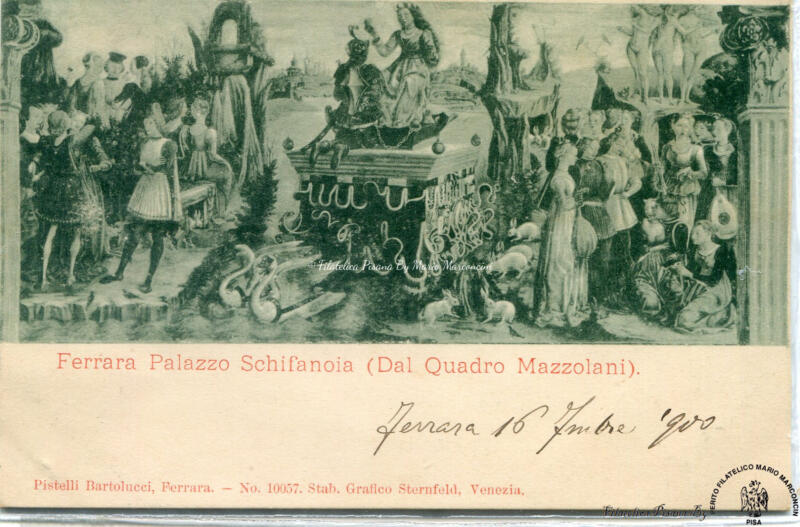 Filatelica Pisana By Mario Marconcini
Ferrara Palazzo Schifanoia (Dal Quadro Mazzolani).
Ferrara 16 7mbre '900
Pistelli Bartolucci, Ferrara. — No. 10057. Stab. Grafico Sternfeld, Venezia.
Filatelica Pisana By
PERITO FILATELICO MARIO MARCONCINI
PISA